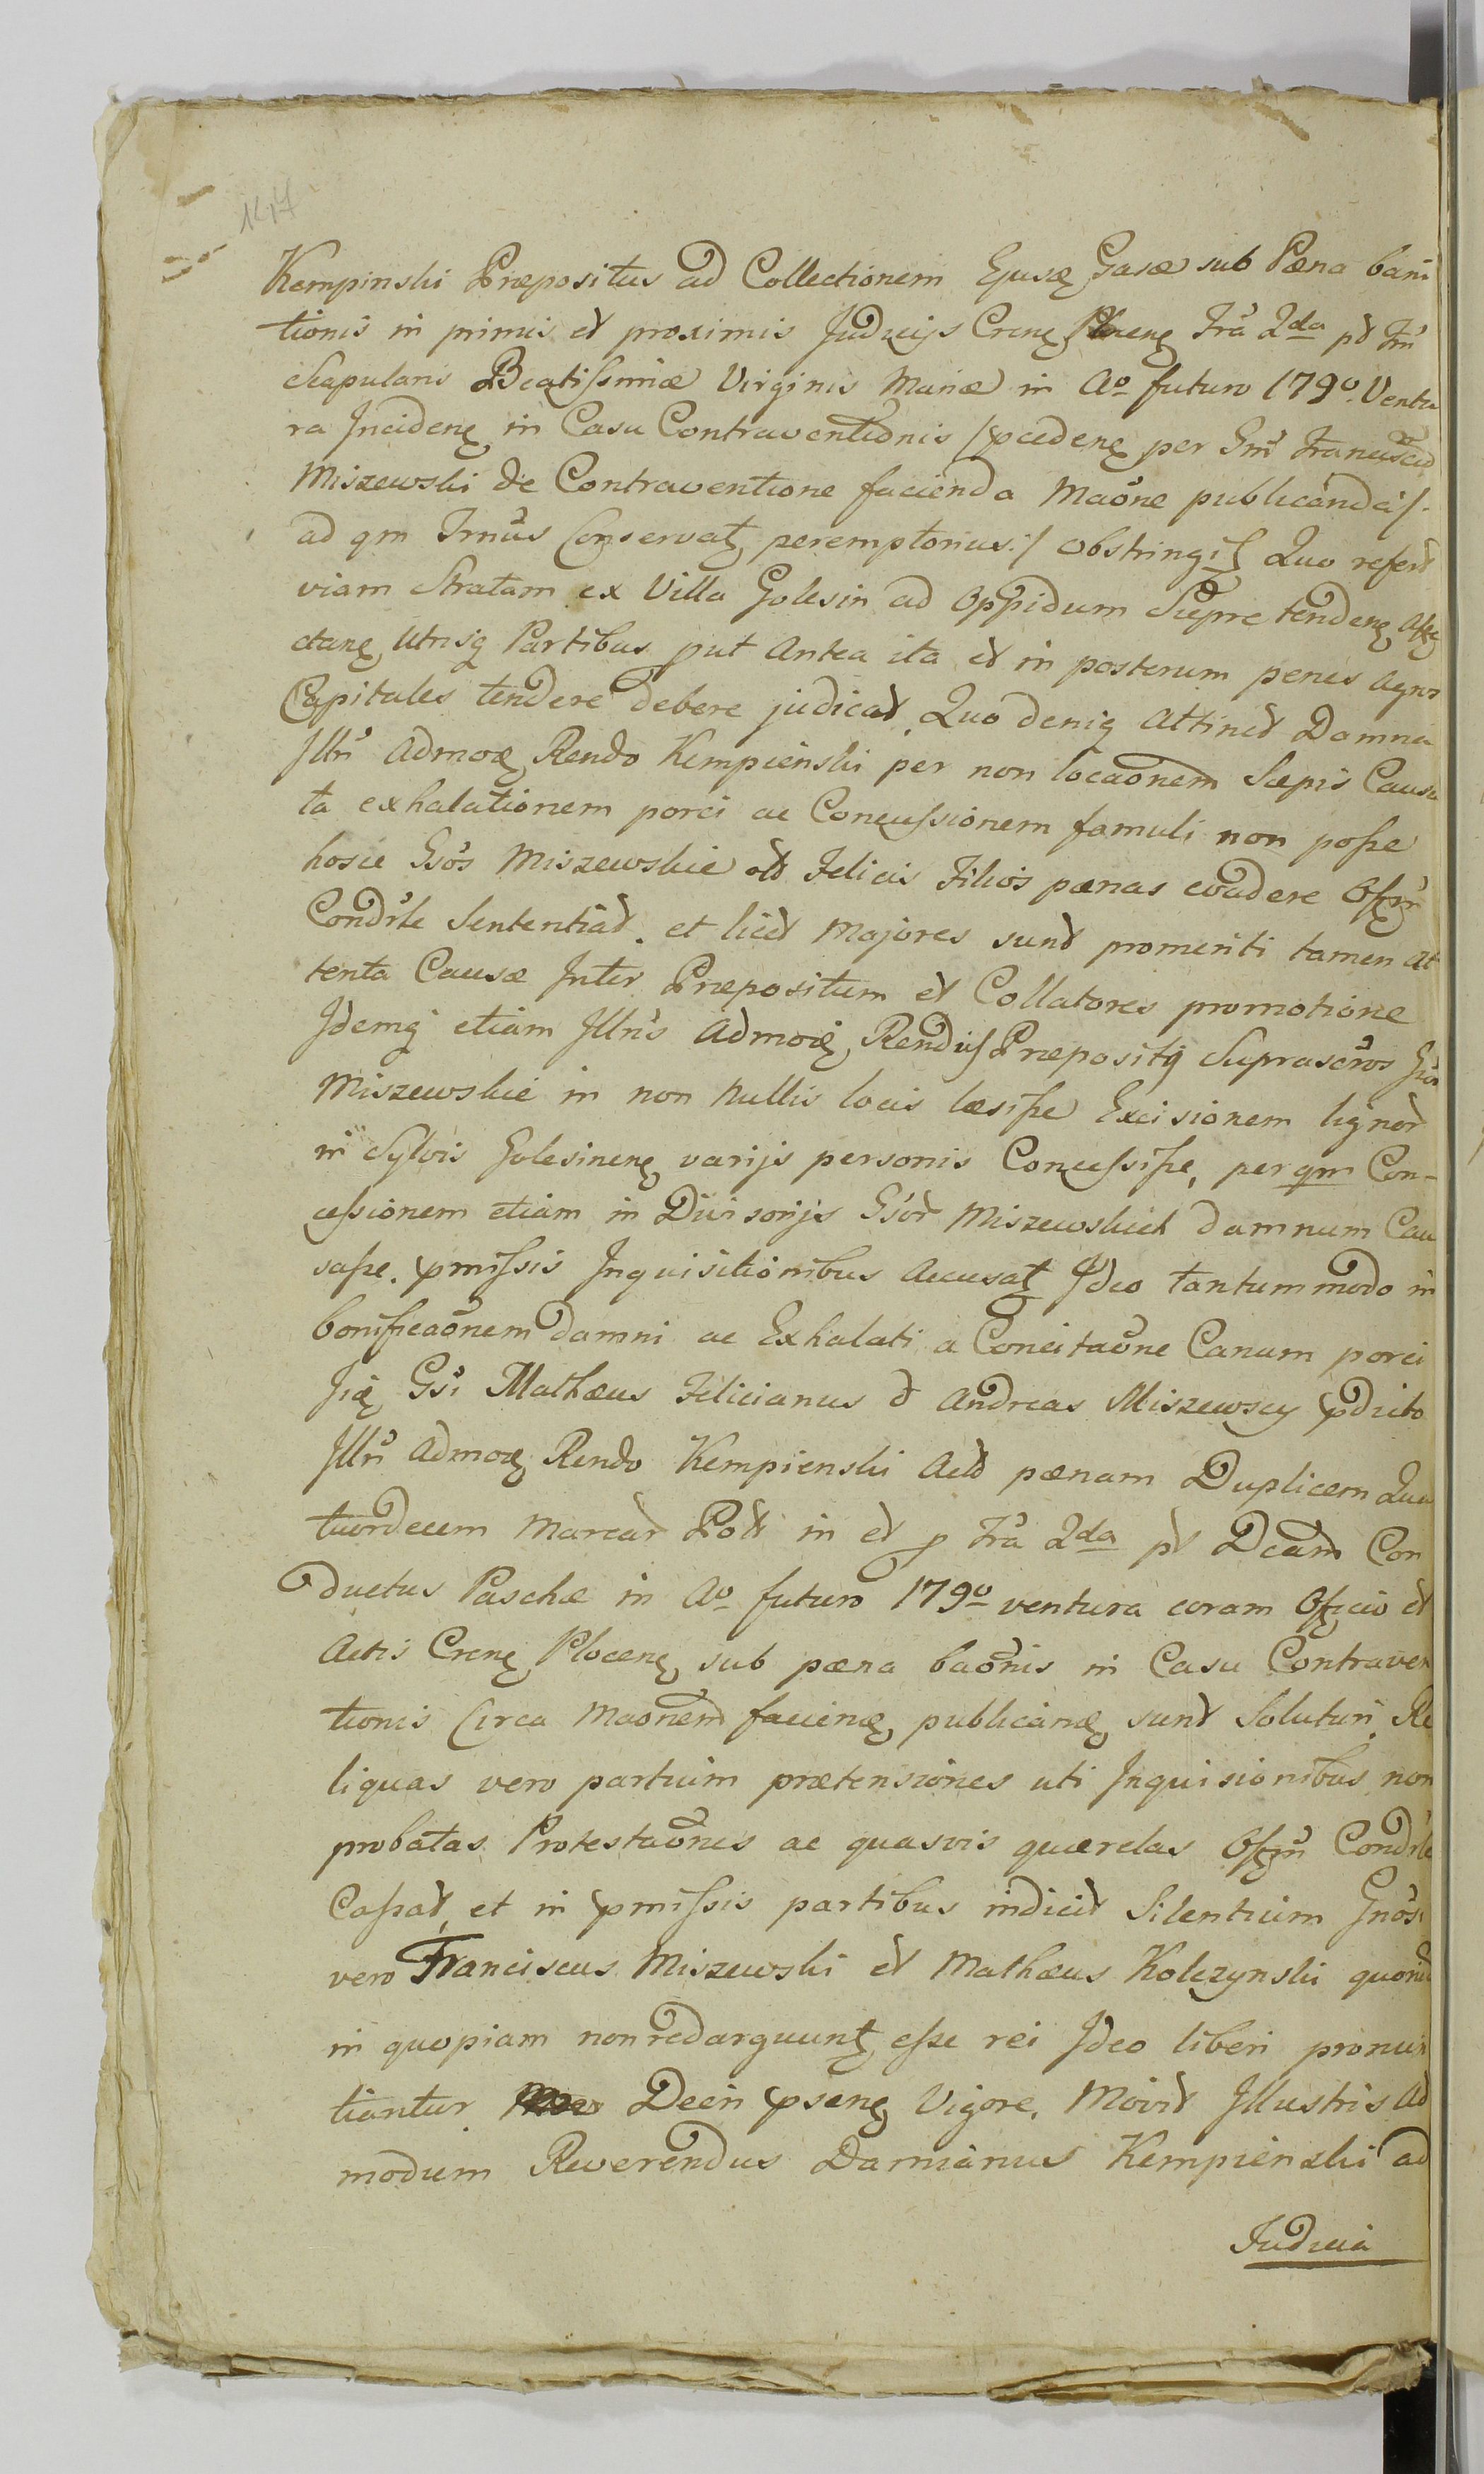 Kempinski Præpositus ad Collectionem Ejusę Gasæ sub Pæna bani
tionis in primis et proximis Judicijs Crenę Plocenę Fra 2da pt Fm
Scapularis Beatissimæ Virginis Mariæ in Ao futuro 1790. Ventu
ra Incidenę in Casu Contraventionis /pcedenę per Gm Franciscu
Miszewski de Contraventione facienda Maone publicanda/.
ad qm Trnus Conservatę peremptorius:/ obstringit Quo refert
viam Stratam ex Villa Golesin ad Oppidum Siepre tendenę
ctanę utrisq Partibus put antea ita et in posterum penes agros
Capitales tendere debere judicat. Quo deniq Attinet Damna
Illri Admoę Rendo Kempienski per non locaonem Sæpis Causa
ta exhalationem porci ac Concussionem famuli non posse
hosce Gsos Miszewskie olt Felicis Filios pænas evadere Offm
Condrle Sententiat. et licet Majores sunt promeriti tamen at
tenta Causæ Inter Præpositum et Collatores promotione
Idemq etiam Illris Admoę Rendus Præpositq Suprascros Gsos
Miszewskie in non nullis locis læsisse Excisionem lignor
in Sylvis Golesinenę varijs personis Concessisse, per qm Con-
cessionem etiam in Divisorijs Gsor Miszewskich damnum Cau
sasse. pmissis Inquisitionibus Accusatę Ideo tantummodo in
bonificaonem damni ac Exhalati a Concitaone Canum porci
Iię Gsi Mathæus Felicianus et Andreas Miszewscy pdicto
Illri Admoę Rendo Kempienski Actd pænam Duplicem Qua
tuordecem Marcar Polt in et p Fra 2da pt Dcam Con
ductus Paschæ in Ao futuro 1790 ventura coram Officio et
Actis Crenę Plocenę sub pæna baonis in Casu Contraven
tionis Circa Maonem facienę, publicanę, sunt Soluturi. Re
liquas vero partium prætensiones uti Inquisionibus non
probatas Protestaones ac quasvis quærelas Offm Condrle
Cassat, et in pmissis partibus indicit Silentium Gnosi
vero Franciscus Miszewski et Mathæus Kolczynski quonid
in quopiam non redarguuntę esse rei Ideo liberi pronun
tiantur Decri psenę Vigore. Movit Illustris Ad
modum Reverendus Damianus Kempienski ad
Judicia